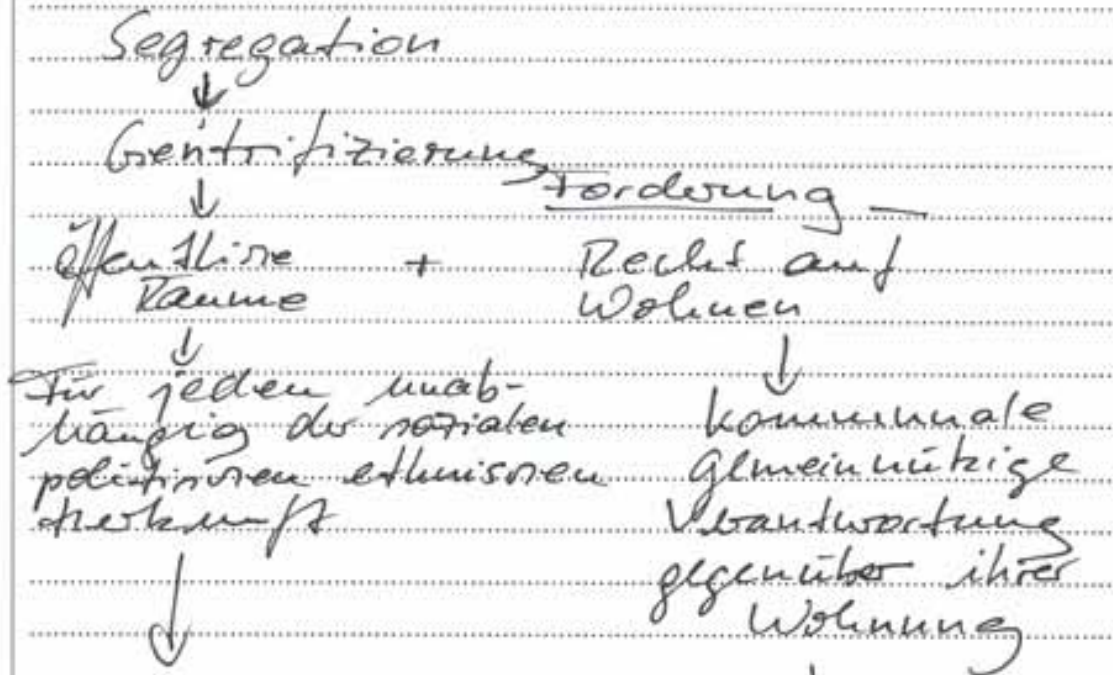 Segregation
↓
Gentrifizierung
↓
Forderung —
öffentliche + Recht auf
Räume Wohnen
↓ ↓
Für jeden unab-
hängig der sozialen
politischen ethnischen
Herkunft
kommunale
gemeinnützige
Verantwortung
gegenüber ihrer
Wohnung
↓